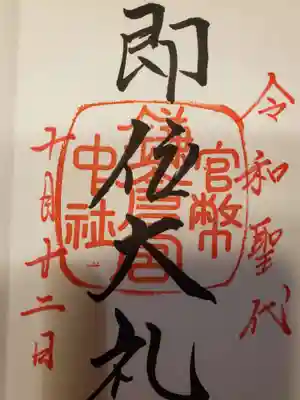 令和聖代
即位大礼
十月廿二日
官幣
中社
鎌倉宮